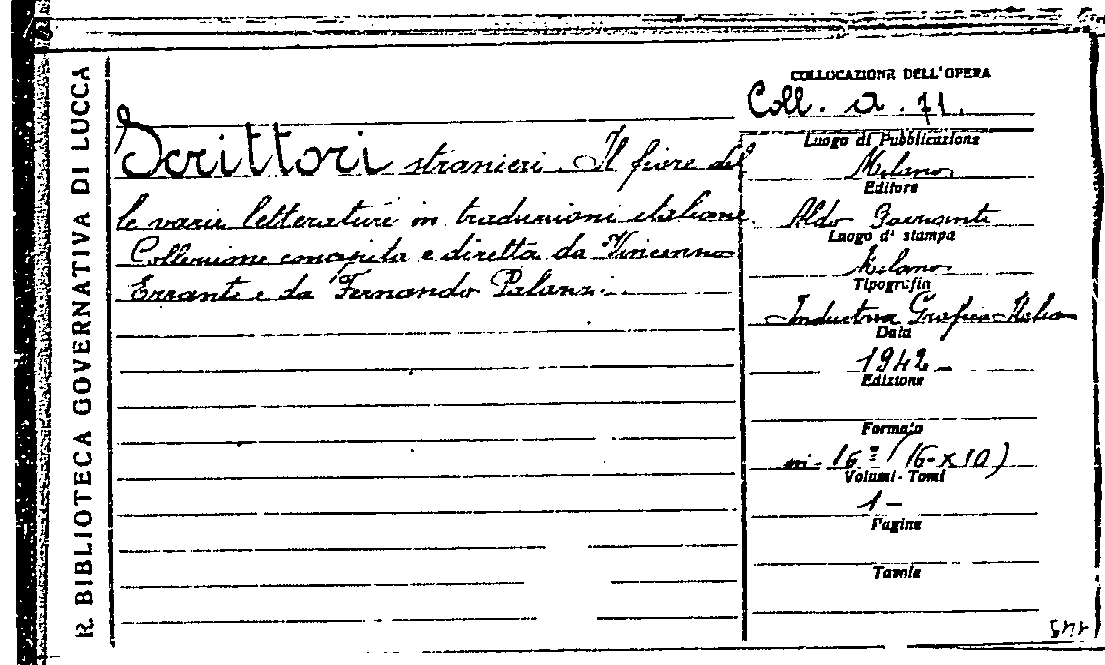 R. BIBLIOTECA GOVERNATIVA DI LUCCA
Scrittori stranieri. Il fiore del
le varie letterature in traduzioni italiane.
Collezione concepita e diretta da Vincenzo
Errante e da Fernando Palazzi.
COLLOCAZIONE DELL'OPERA
Coll. a. 71.
Luogo di Pubblicazione
Milano
Editore
Aldo Garzanti
Luogo di stampa
Milano
Tipografia
Industrie Grafiche Italia
Data
1942
Edizione
Formato
in-16° (16 x 10)
Volumi - Tomi
1 -
Pagine
Tavole